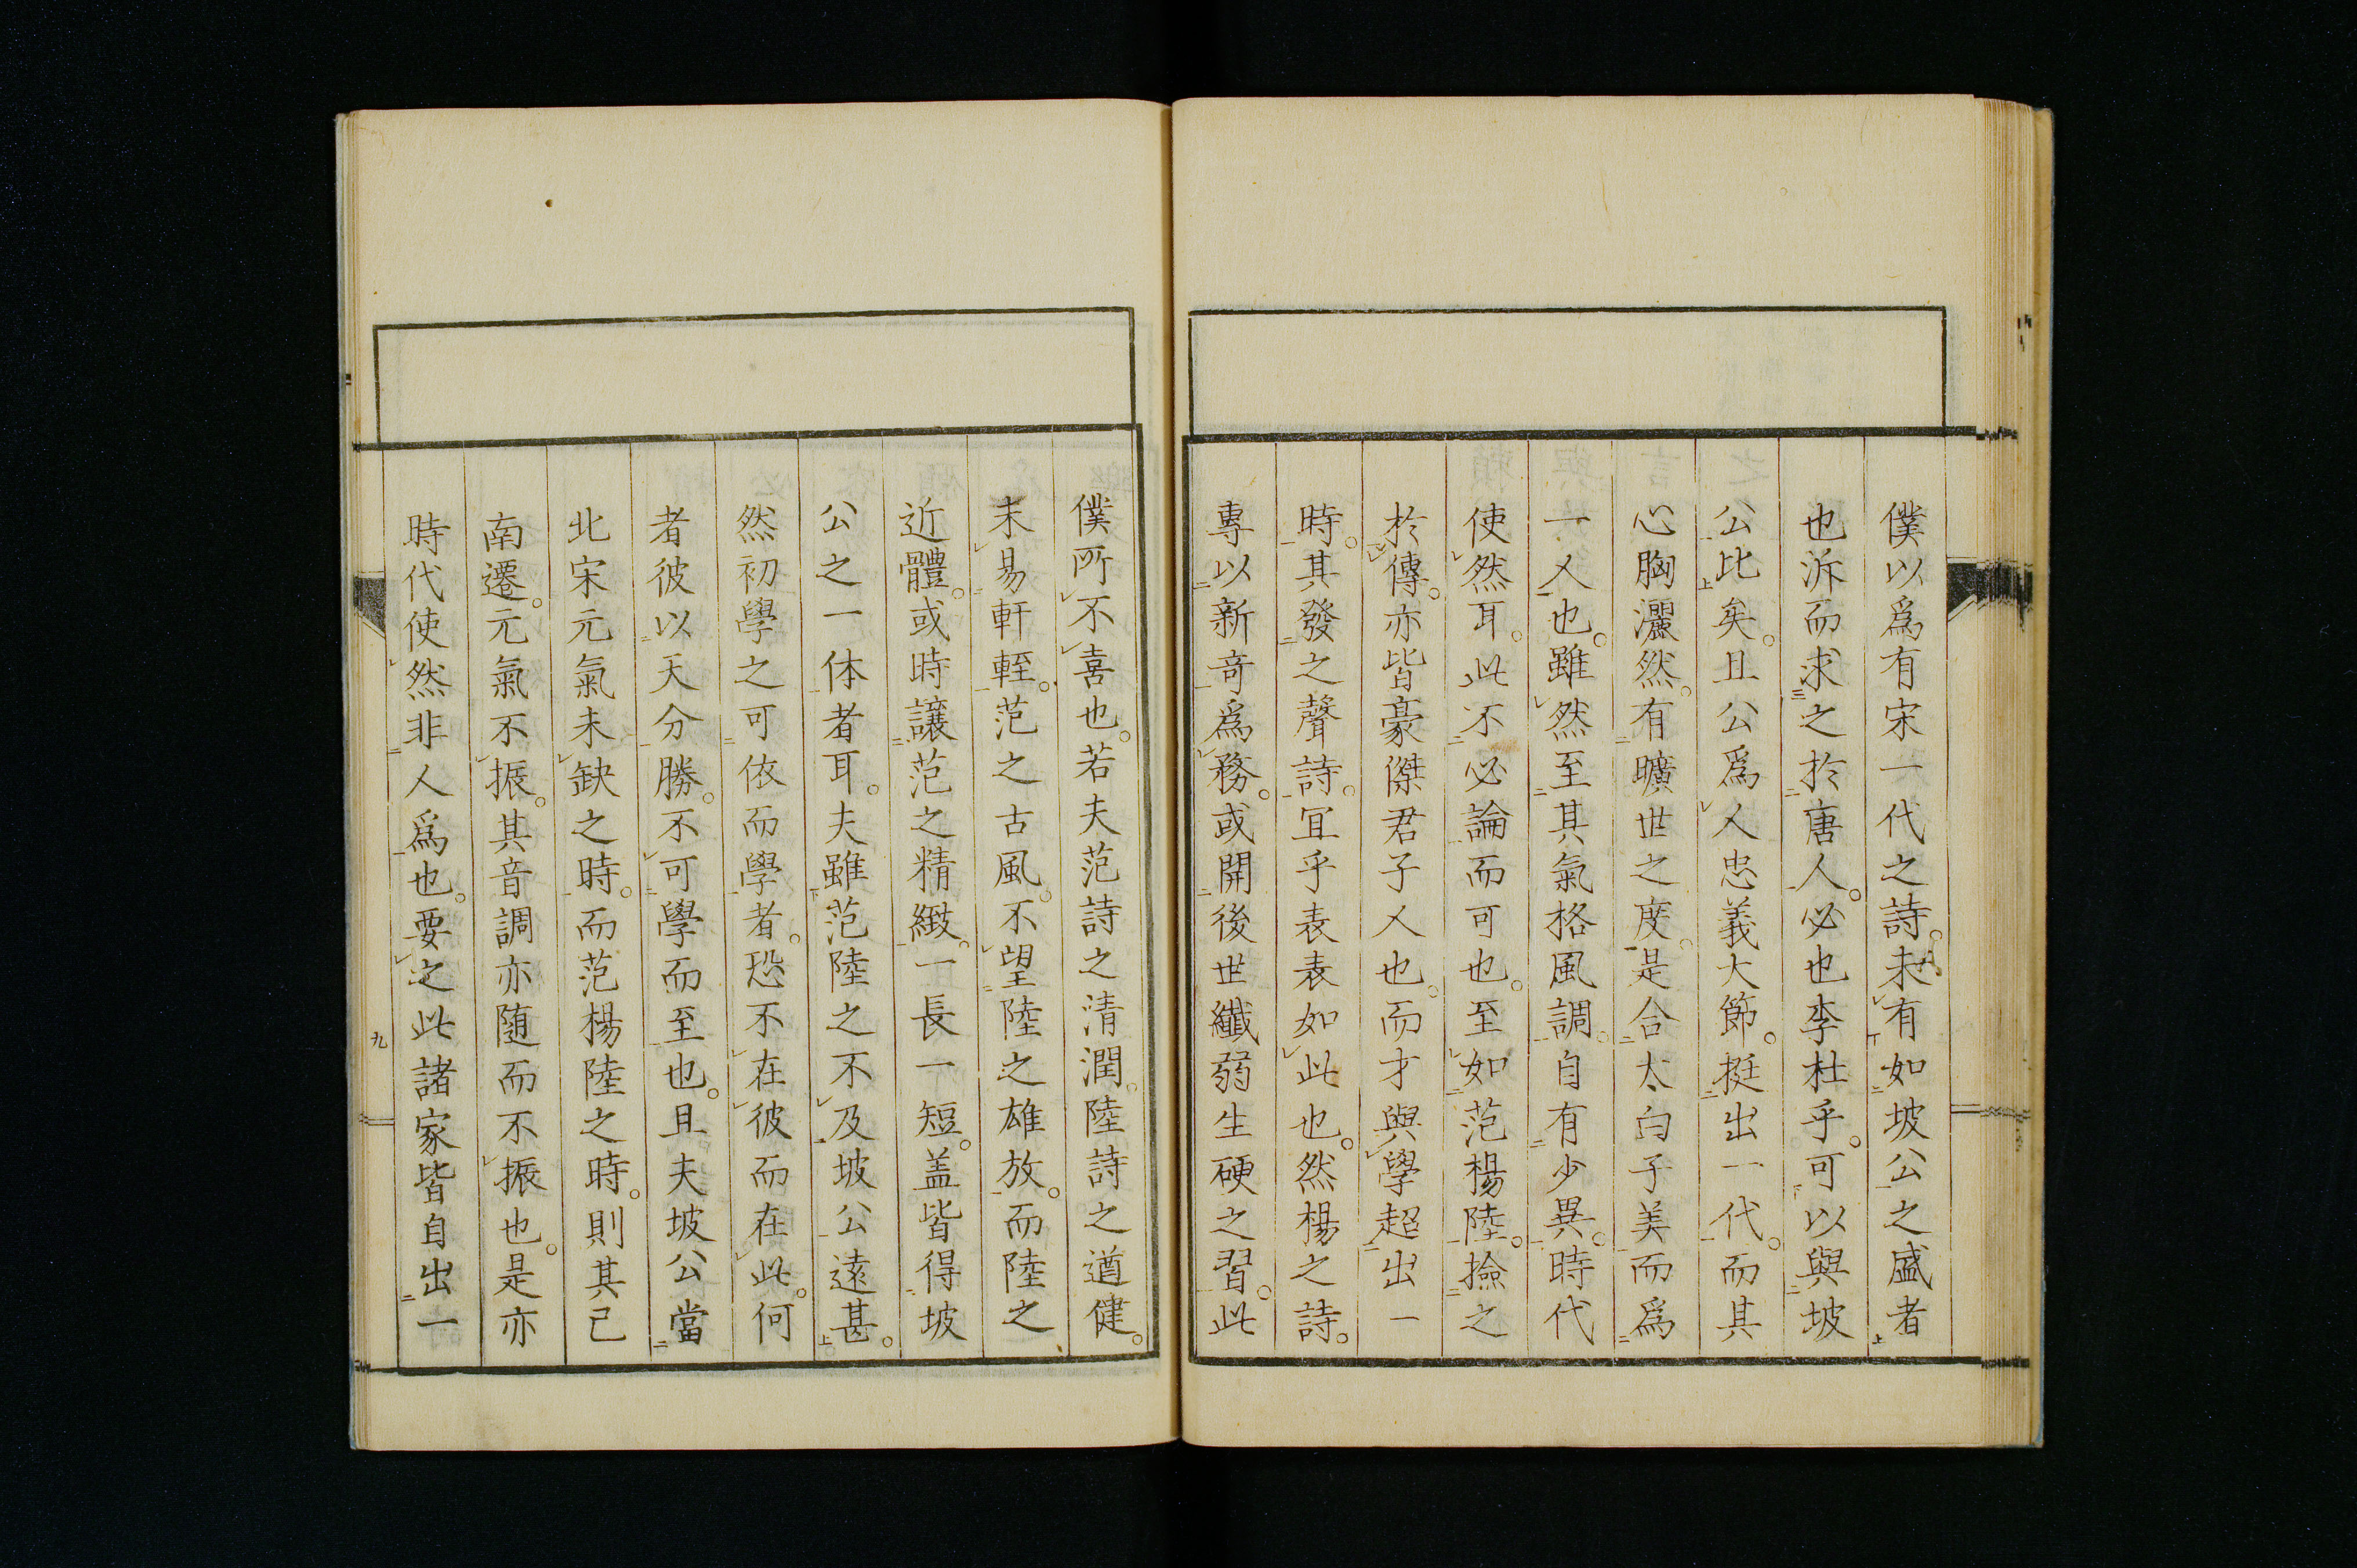 僕以爲有宋一代之詩。未有如坡公之盛者
也泝而求之於唐人。必也李杜乎。可以與坡
公比矣。且公爲人忠義大節。挺出一代。而其
心胸灑然。有曠世之度。是合太白子美而爲
一人也。雖然至其氣格風調。自有少異。時代
使然耳。此不必論而可也。至如范楊陸。撿之
於傳。亦皆豪傑君子人也。而才與學超出一
時。其發之聲詩。宜乎表表如此也。然楊之詩。
專以新奇爲務。或開後世纖弱生硬之習。此
僕所不喜也。若夫范詩之清潤。陸詩之遒健。
未易軒輊。范之古風。不望陸之雄放。而陸之
近體。或時讓范之精緻。一長一短。盖皆得坡
公之一体者耳。夫雖范陸之不及坡公遠甚。
然初學之可依而學者。恐不在彼而在此。何
者彼以天分勝。不可學而至也。且夫坡公當
北宋元氣未缺之時。而范楊陸之時。則其已
南遷。元氣不振。其音調亦随而不振也。是亦
時代使然非人爲也。要之此諸家皆自出一
九